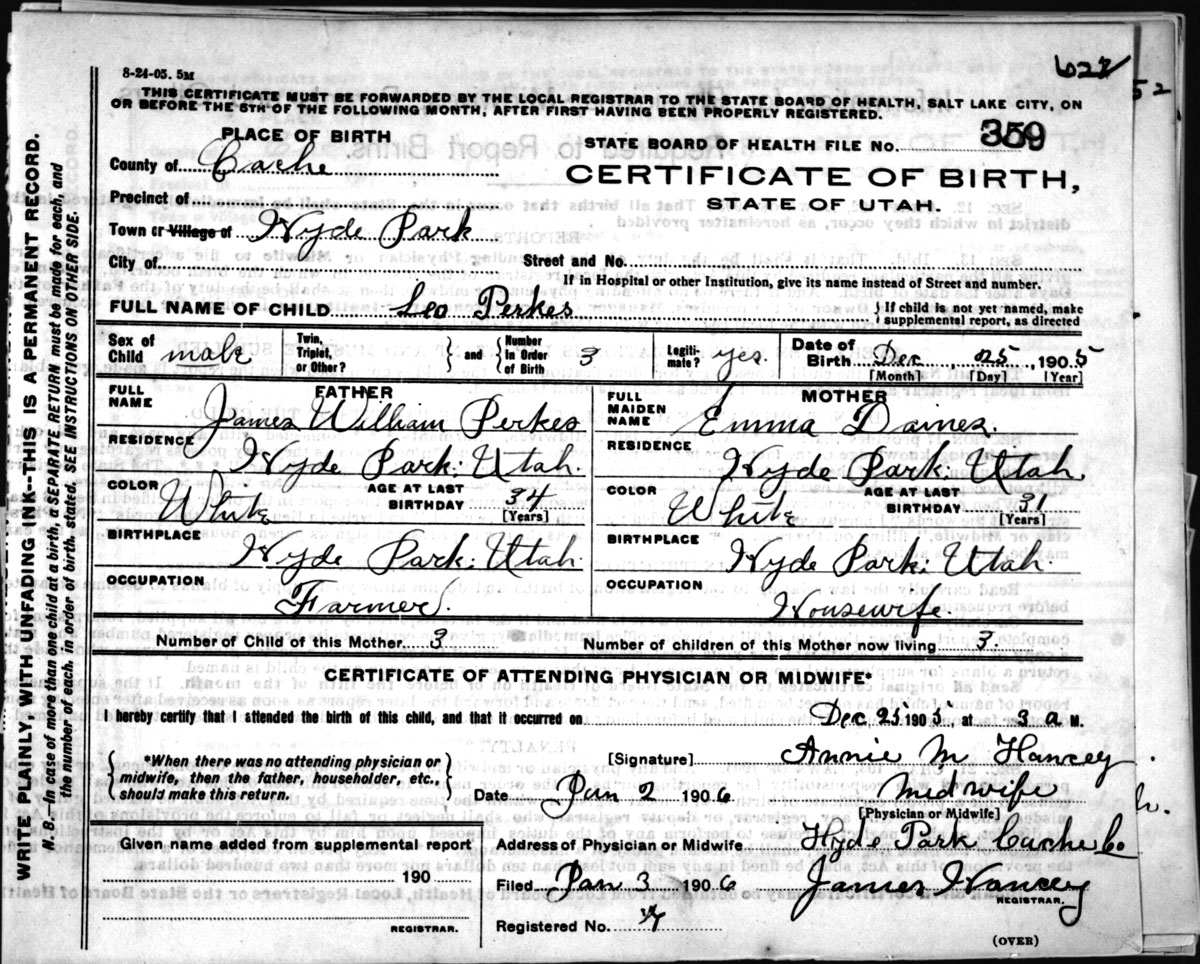 8-24-05. 5M
627
52
THIS CERTIFICATE MUST BE FORWARDED BY THE LOCAL REGISTRAR TO THE STATE BOARD OF HEALTH, SALT LAKE CITY, ON
OR BEFORE THE 5TH OF THE FOLLOWING MONTH, AFTER FIRST HAVING BEEN PROPERLY REGISTERED.
PLACE OF BIRTH
STATE BOARD OF HEALTH FILE NO. 359
County of Cache
CERTIFICATE OF BIRTH,
STATE OF UTAH.
Precinct of
Town or Village of Hyde Park
City of Street and No.
If in Hospital or other Institution, give its name instead of Street and number.
FULL NAME OF CHILD Leo Perkes } If child is not yet named, make
supplemental report, as directed
Sex of Child male Twin, Triplet, or Other? } and { Number in Order of Birth 3 Legiti-mate? yes. Date of Birth Dec 25, 1905
[Month] [Day] [Year]
FATHER MOTHER
FULL NAME James William Perkes FULL MAIDEN NAME Emma Daines.
RESIDENCE Hyde Park: Utah. RESIDENCE Hyde Park: Utah.
COLOR White AGE AT LAST BIRTHDAY 34 [Years] COLOR White AGE AT LAST BIRTHDAY 31 [Years]
BIRTHPLACE Hyde Park: Utah. BIRTHPLACE Hyde Park: Utah.
OCCUPATION Farmer. OCCUPATION Housewife.
Number of Child of this Mother 3 Number of children of this Mother now living 3.
CERTIFICATE OF ATTENDING PHYSICIAN OR MIDWIFE*
I hereby certify that I attended the birth of this child, and that it occurred on Dec 25 1905, at 3 a M.
{ *When there was no attending physician or
midwife, then the father, householder, etc.,
should make this return. }
[Signature] Annie M Hancey
Date Jan 2 1906 Midwife
[Physician or Midwife]
Given name added from supplemental report
Address of Physician or Midwife Hyde Park Cache Co
190
Filed Jan 3 1906 James Hancey
REGISTRAR.
REGISTRAR.
Registered No.
(OVER)
WRITE PLAINLY WITH UNFADING INK--THIS IS A PERMANENT RECORD.
N. B.--In case of more than one child at a birth, a SEPARATE RETURN must be made for each, and
the number of each, in order of birth, stated. SEE INSTRUCTIONS ON OTHER SIDE.